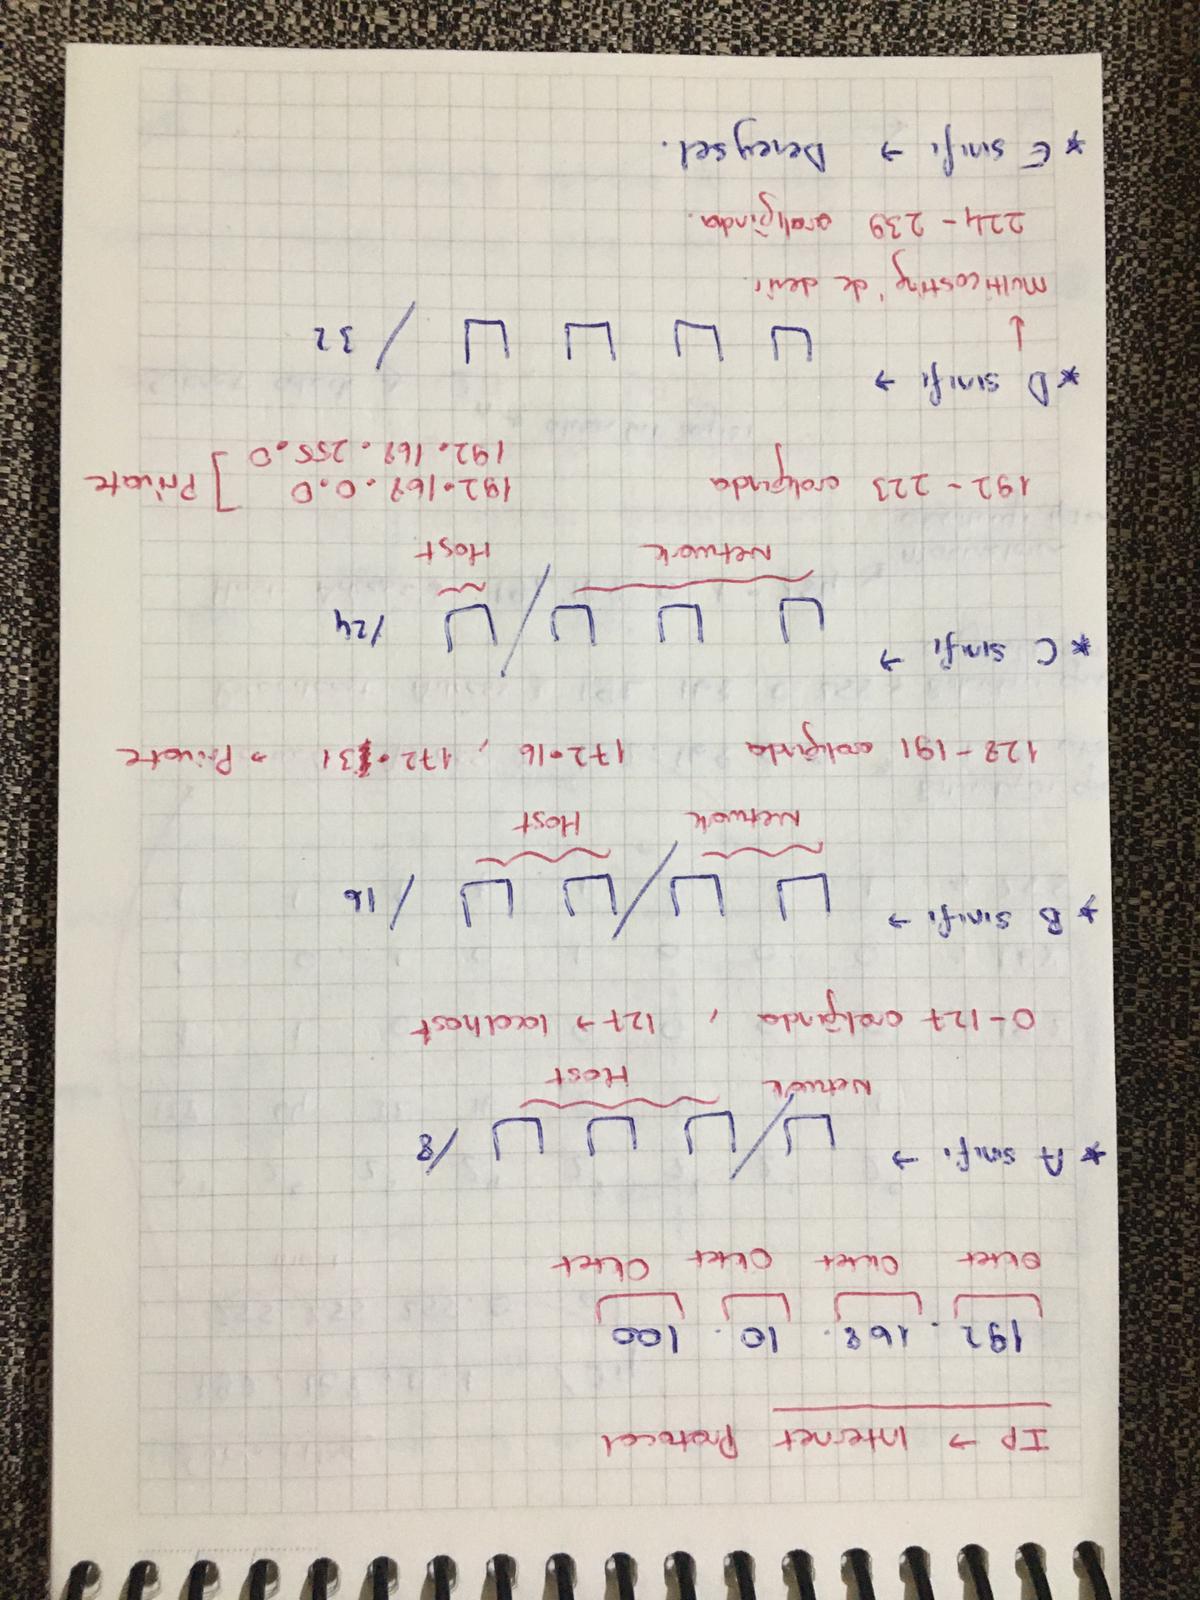 IP → Internet Protocol
192 . 168 . 10 . 100
Oktet Oktet Oktet Oktet
* A sınıfı → /8
Network Host
0-127 aralığında , 127 → localhost
* B sınıfı → /16
Network Host
128-191 aralığında 172.16 , 172.31 → Private
* C sınıfı → /24
Network Host
192-223 aralığında 192.168.0.0
192.168.255.0 ] Private
* D sınıfı → / 32
↓
multicasting'de denir.
224-239 aralığında.
* E sınıfı → Deneysel.